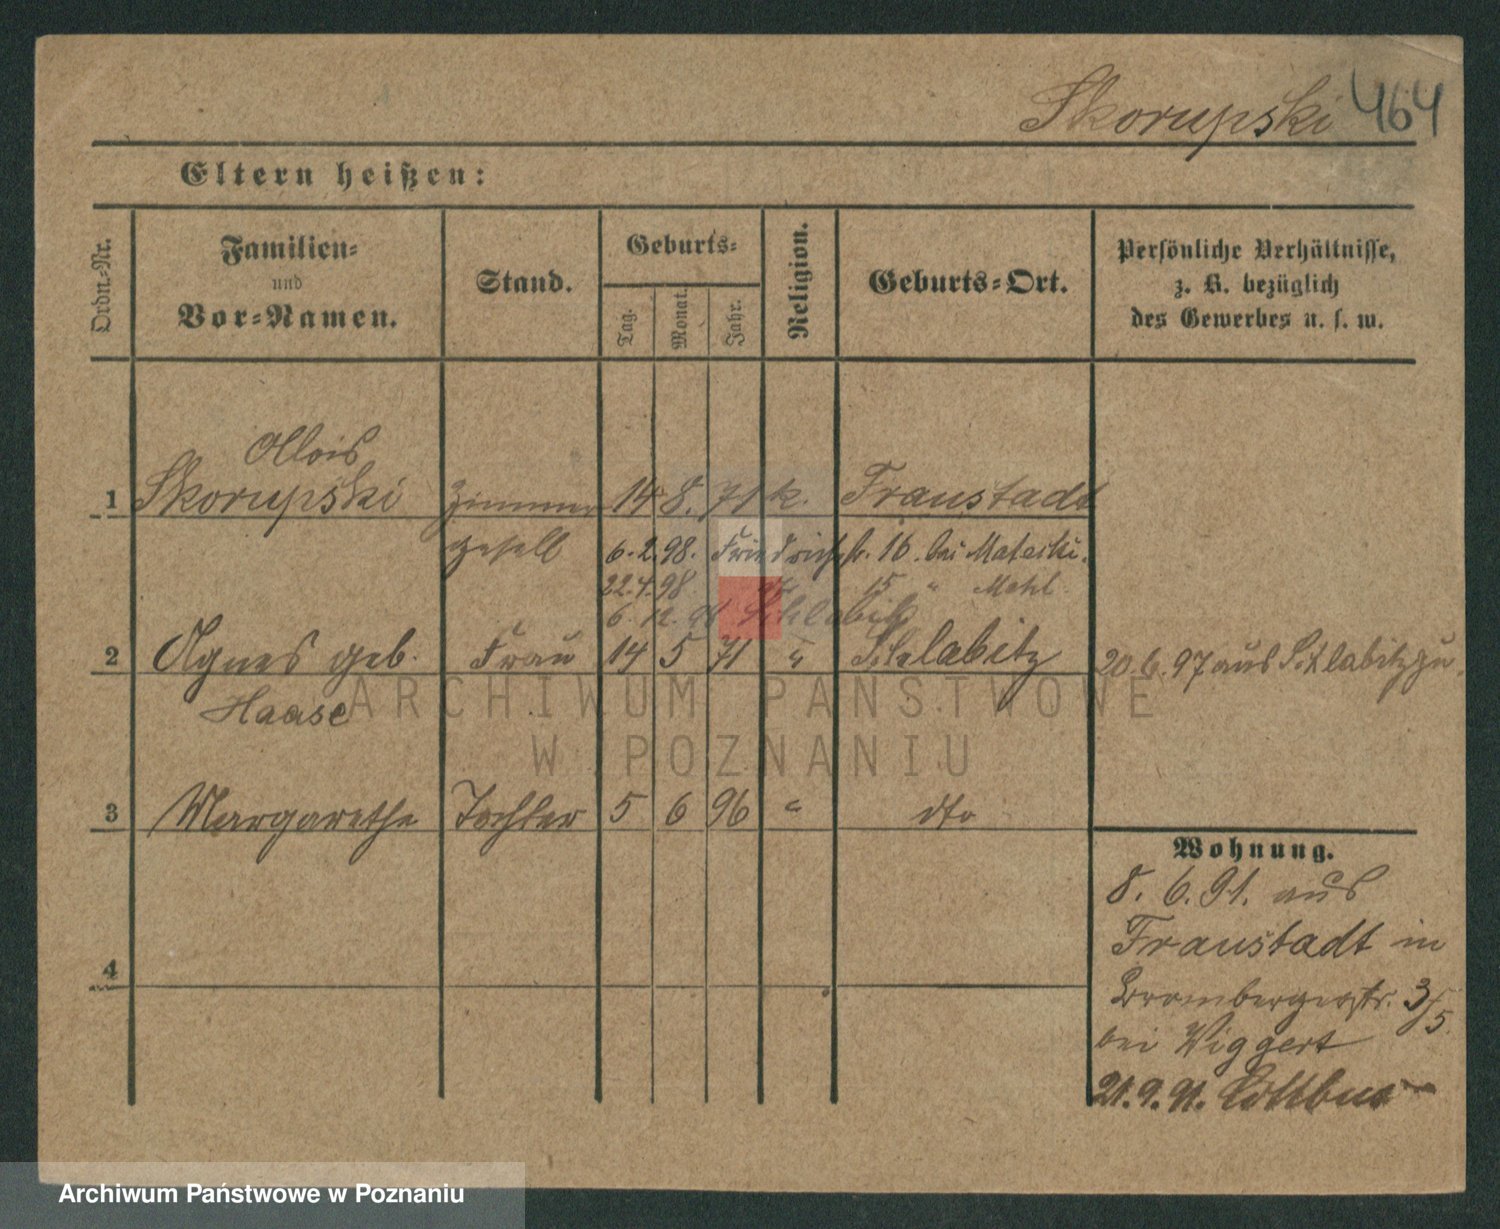 Skorupski 464
Eltern heißen:
Ordn.-Nr.
Familien-
und
Vor-Namen.
Stand.
Geburts-
Tag.
Monat.
Jahr.
Religion.
Geburts-Ort.
Persönliche Verhältnisse,
z. B. bezüglich
des Gewerbes u. s. w.
Alois
1 Skorupski Zimmer 14 8. 71 k. Fraustadt
gesell 6. 2. 98. Friedrichstr. 16. bei
22. 4. 98 15 "
6. 12. Schlabitz
2 Agnes geb. Frau 14 5 71 " Schlabitz 20. 6. 97 aus Schlabitz zu
Haase
ARCHIWUM PAŃSTWOWE
W POZNANIU
3 Margarethe Tochter 5 6 96 " dto
Wohnung.
8. 6. 91. aus
Fraustadt in
4
Brombergerstr. 3/5
bei Wiggert
21. 9. 91. Cottbus
Archiwum Państwowe w Poznaniu